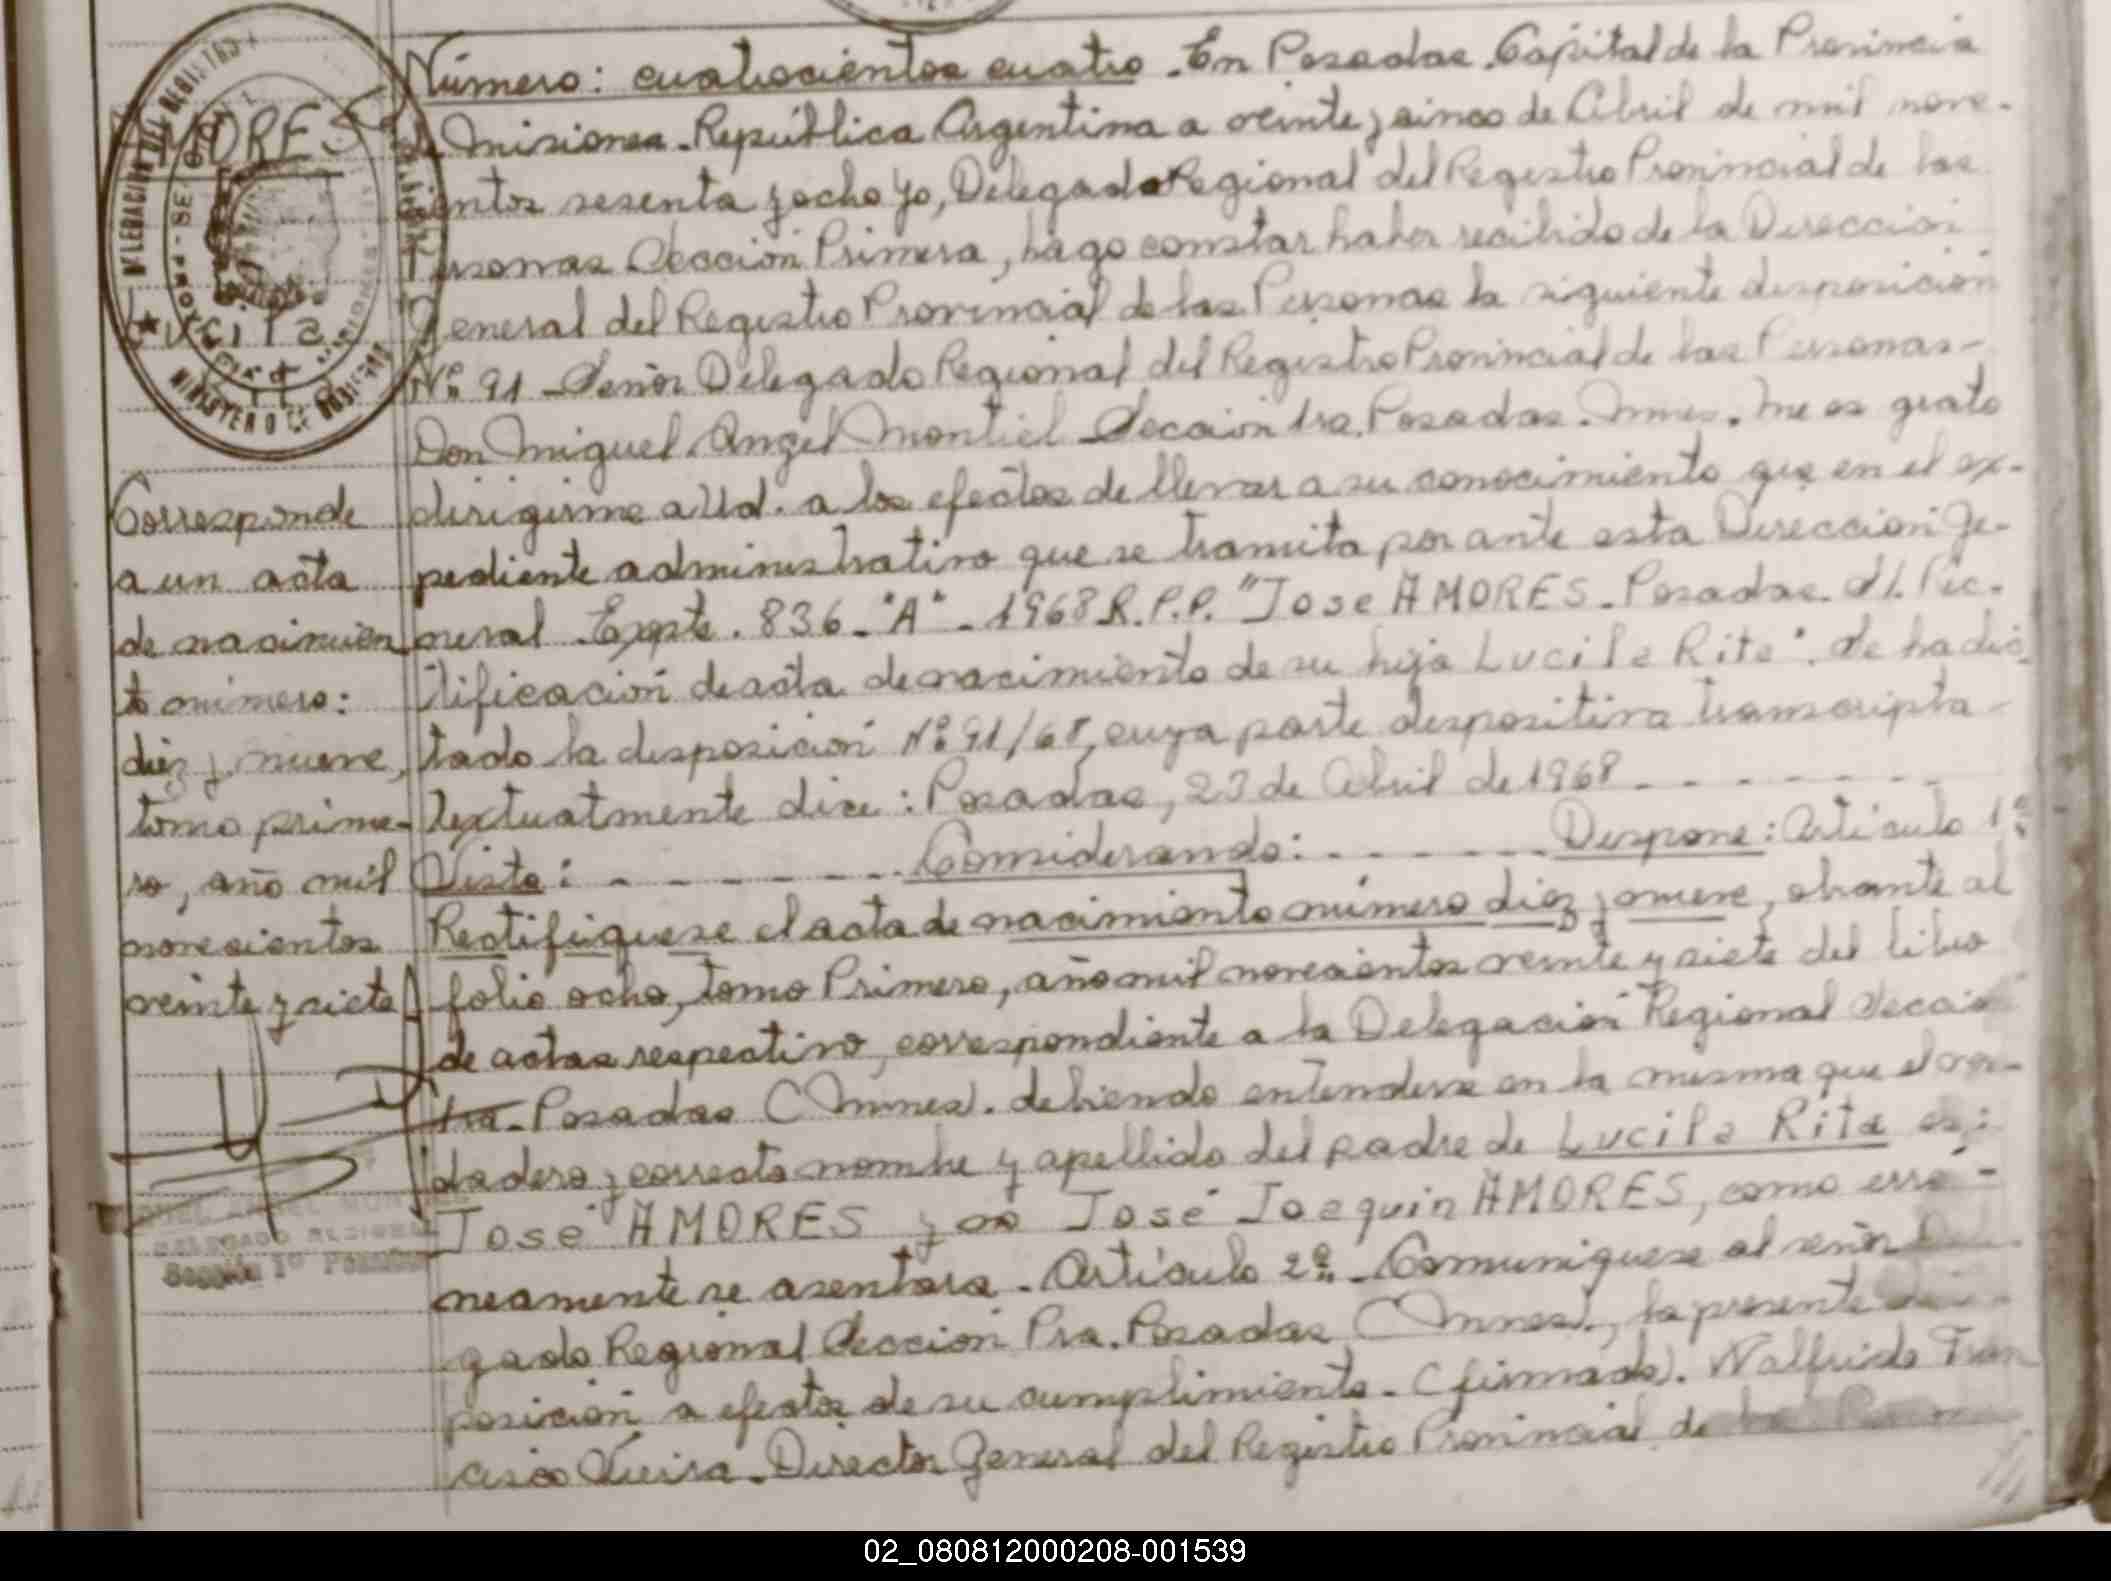 AMORES
Lucila
Corresponde
a un acta
de nacimien
to número:
diez y nueve,
tomo prime-
ro, año mil
novecientos
veinte y siete
DELEGADO REGIONAL
Sección 1º Posadas
Número: cuatrocientos cuatro. En Posadas. Capital de la Provincia
de Misiones. República Argentina a veinte y cinco de Abril de mil nove-
cientos sesenta y ocho yo, Delegado Regional del Registro Provincial de las
Personas Sección Primera, hago constar haber recibido de la Dirección
General del Registro Provincial de las Personas la siguiente disposición
Nº 91 - Señor Delegado Regional del Registro Provincial de las Personas-
Don Miguel Angel Montiel Sección 1ra. Posadas. Mnes. Me es grato
dirigirme a Ud. a los efectos de llevar a su conocimiento que en el ex-
pediente administrativo que se tramita por ante esta Dirección Ge-
neral. Expte. 836-"A"-1968 R.P.P. "Jose AMORES. Posadas. s/. Rec-
tificación de acta de nacimiento de su hija Lucila Rita". Se ha dic-
tado la disposición Nº 91/68, cuya parte dispositiva transcripta
textualmente dice: Posadas, 23 de Abril de 1968 - - - - - - -
Visto: - - - - - - - - Considerando: - - - - - - Dispone: Artículo 1º
Rectifíquese el acta de nacimiento número diez y nueve, obrante al
folio ocho, tomo Primero, año mil novecientos veinte y siete del libro
de actas respectivo, correspondiente a la Delegación Regional Sección
1ra. Posadas (Mnes). debiendo entenderse en la misma que el ver-
dadero y correcto nombre y apellido del padre de Lucila Rita es:
José AMORES y no José Joaquin AMORES, como erró-
neamente se asentara. Artículo 2º. Comuníquese al señor Dele-
gado Regional Sección Pra. Posadas (Mnes)., la presente
posición a efectos de su cumplimiento. (firmado). Walfrido Fran
cisco Vieira. Director General del Registro Provincial de las
02_080812000208-001539